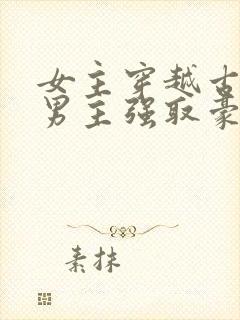 女主穿越古
男主强取豪
素抹